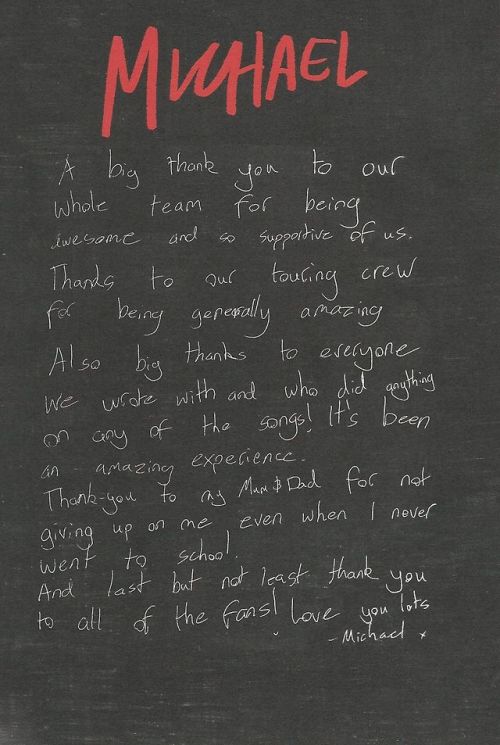 MICHAEL
A big thank you to our
whole team for being
awesome and so supportive of us.
Thanks to our touring crew
for being generally amazing
Also big thanks to everyone
We wrote with and who did anything
on any of the songs! It's been
an amazing experience.
Thank-you to my Mum & Dad for not
giving up on me even when I never
went to school.
And last but not least thank you
to all of the fans! Love you lots
- Michael x